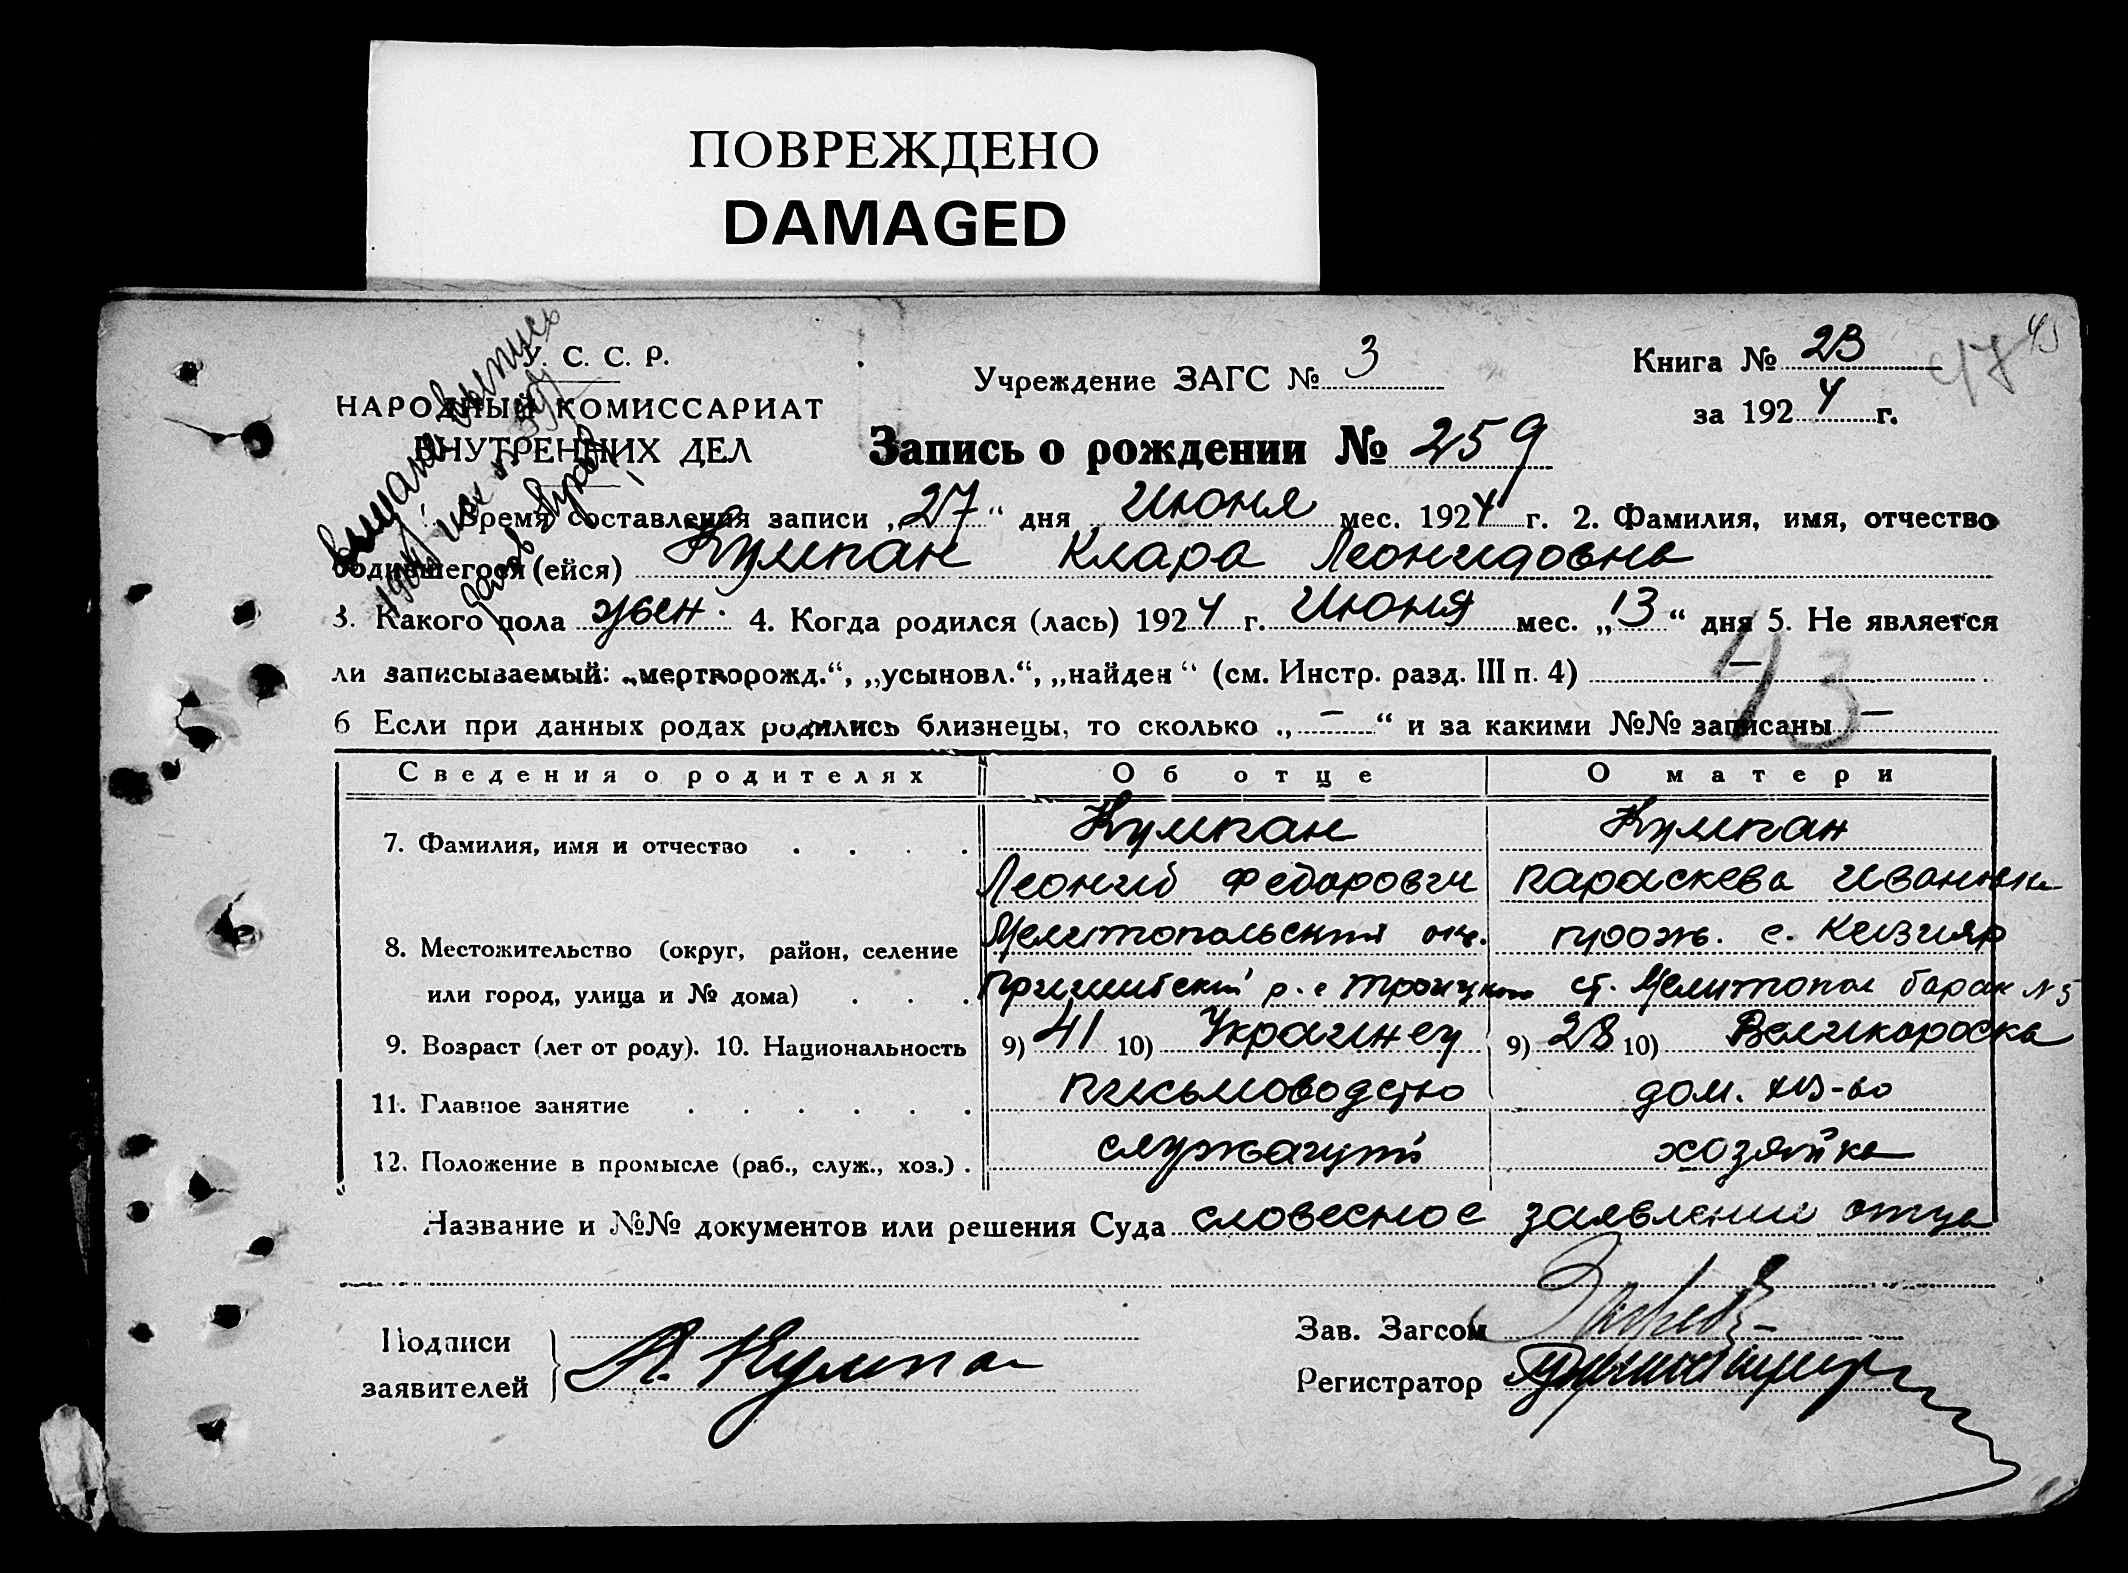 ПОВРЕЖДЕНО
DAMAGED
У. С. С. Р.
НАРОДНЫЙ КОМИССАРИАТ
ВНУТРЕННИХ ДЕЛ
Учреждение ЗАГС № 3
Книга № 23
за 1924 г.
Запись о рождении № 259
Время составления записи „27“ дня Июня мес. 1924 г. 2. Фамилия, имя, отчество
родившегося (ейся) Кумпан Клара Леонидовна
3. Какого пола жен. 4. Когда родился (лась) 1924 г. Июня мес. „13“ дня 5. Не является
ли записываемый: „мертворожд.“, „усыновл.“, „найден“ (см. Инстр. разд. III п. 4) —
43
6 Если при данных родах родились близнецы, то сколько „—“ и за какими №№ записаны —
Сведения о родителях Об отце О матери
7. Фамилия, имя и отчество Кумпан Кумпан
Леонид Федорович Параскева Ивановна
8. Местожительство (округ, район, селение Мелитопольский окр. прож. с. Кизияр
или город, улица и № дома) Пришибский р. с Троицкое ст. Мелитопол барак № 5
9. Возраст (лет от роду). 10. Национальность 9) 41 10) Украинец 9) 28 10) Великороска
11. Главное занятие письмоводство дом. хоз-во
12. Положение в промысле (раб., служ., хоз.) служащий хозяйка
Название и №№ документов или решения Суда словесное заявление отца
Подписи
заявителей Л. Кумпан
Зав. Загсом
Регистратор